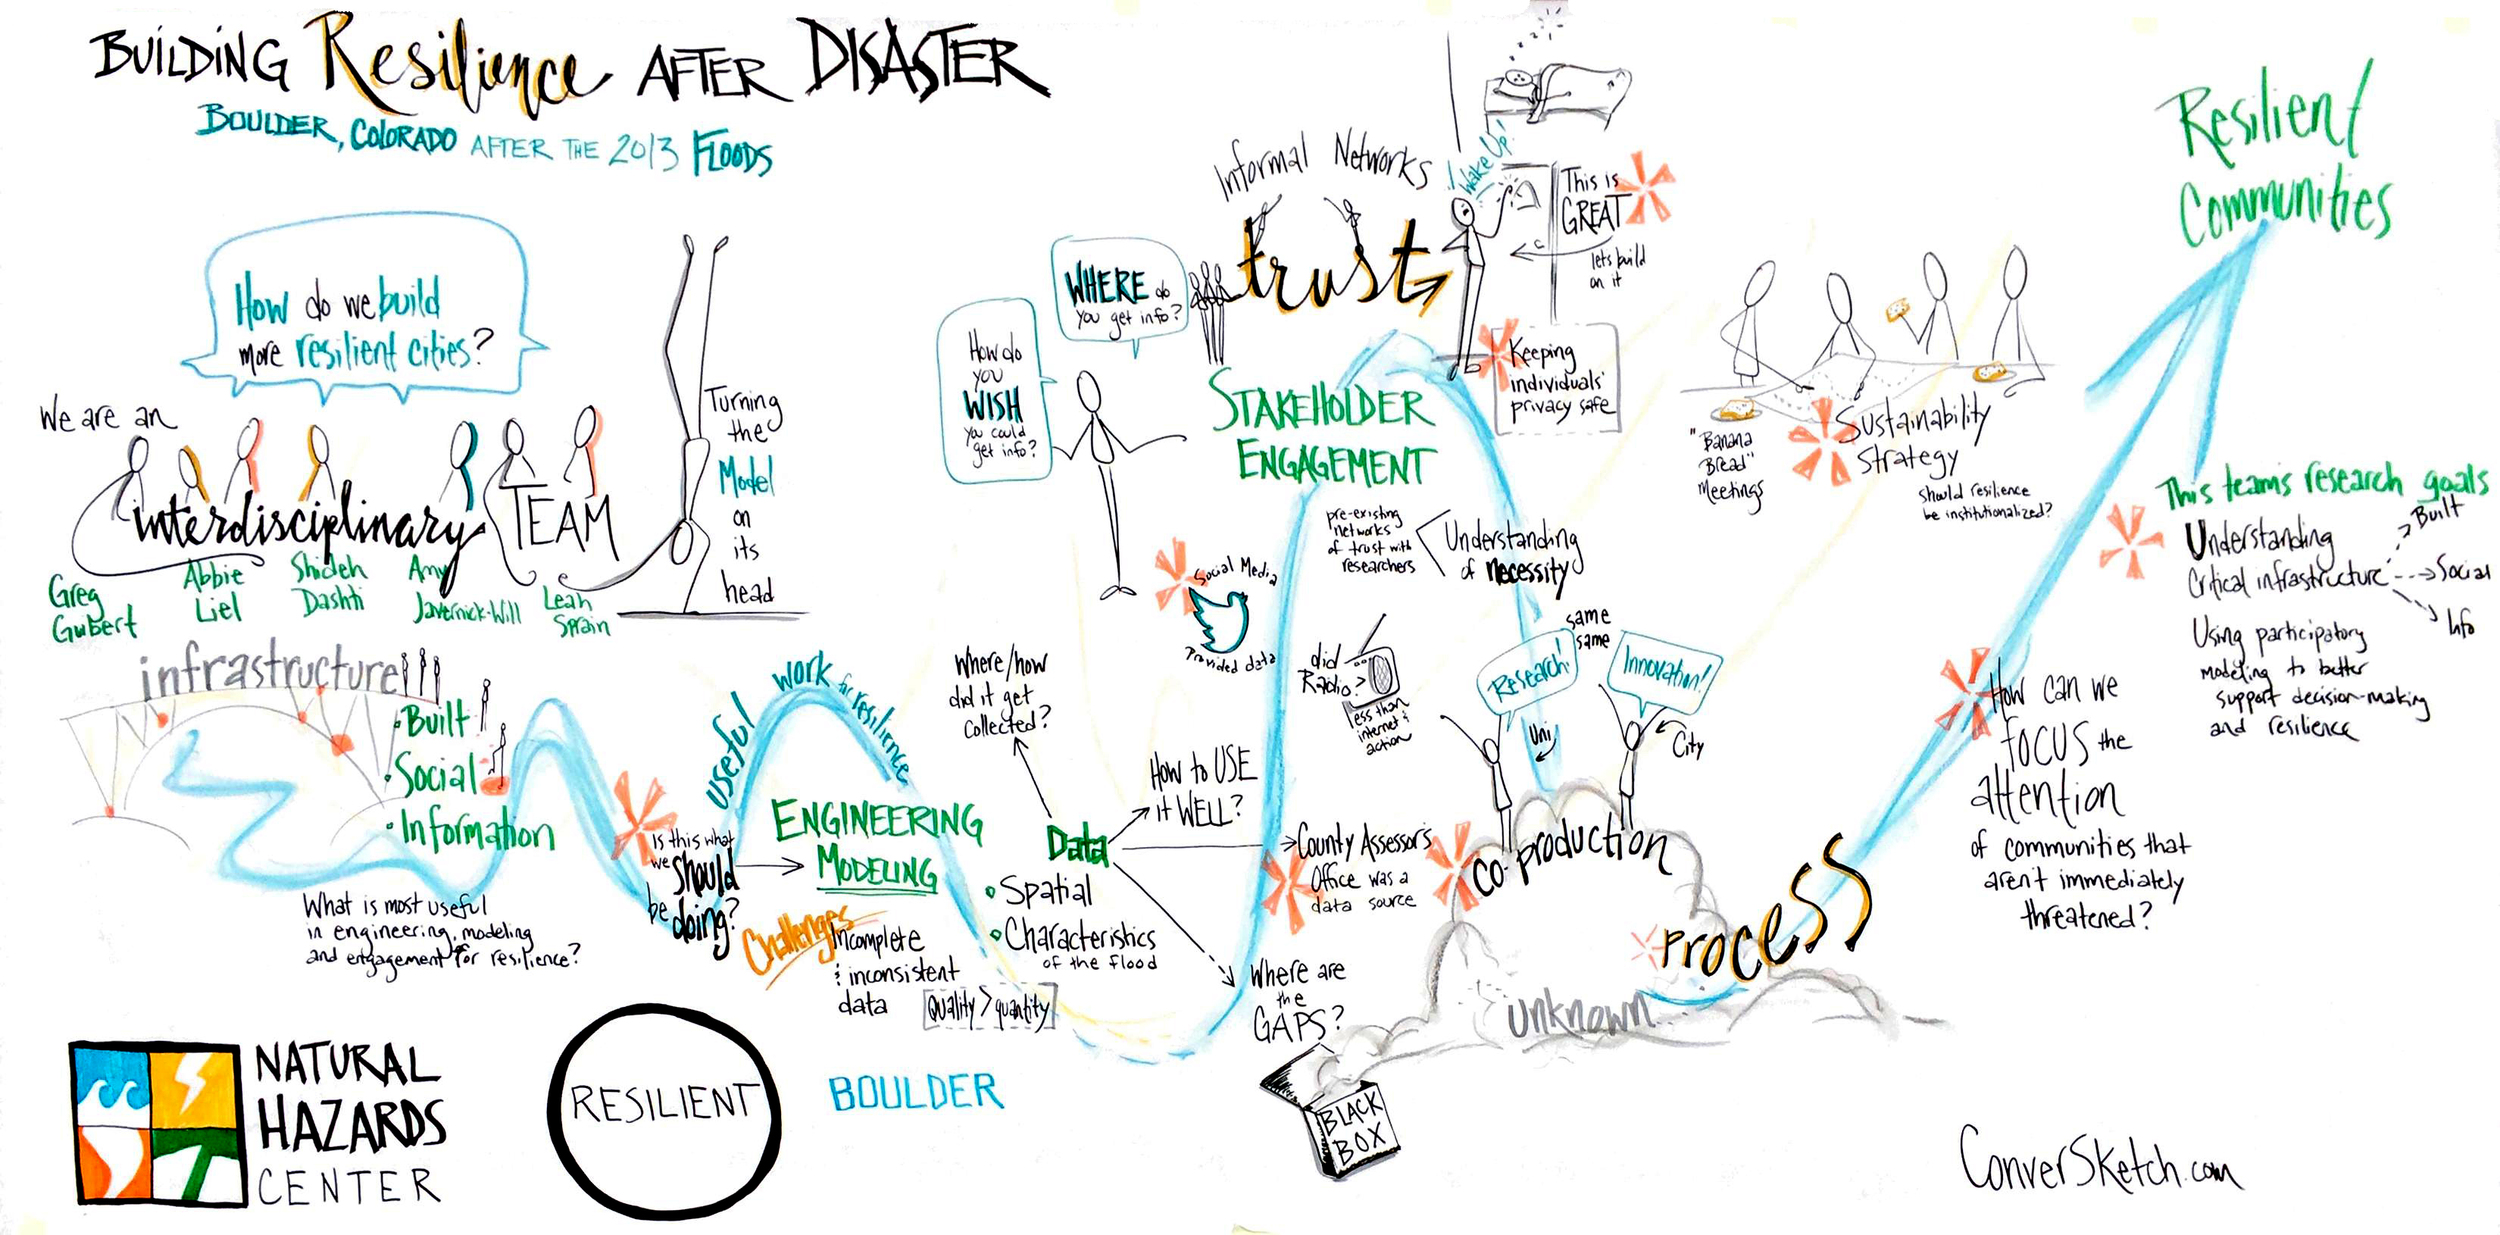 BUILDING Resilience AFTER DISASTER
BOULDER, COLORADO AFTER THE 2013 FLOODS
How do we build
more resilient cities?
We are an
interdisciplinary TEAM
Greg
Guibert
Abbie
Liel
Shideh
Dashti
Amy
Javernick-Will
Leah
Sprain
Turning
the
Model
on
its
head
infrastructure
• Built
• Social
• Information
What is most useful
in engineering, modeling
and engagement for resilience?
Is this what
we should
be doing?
useful work for resilience
ENGINEERING
MODELING
Challenges
Incomplete
& inconsistent
data
Quality > quantity
Data
Spatial
Characteristics
of the flood
Where/how
did it get
collected?
How to USE
it WELL?
County Assessor's
Office was a
data source
Where are
the
GAPS?
How do
you
WISH
you could
get info?
WHERE do
you get info?
Informal Networks
trust
STAKEHOLDER
ENGAGEMENT
Wake Up!
This is
GREAT
lets build
on it
Keeping
individuals'
privacy safe
pre-existing
networks
of trust with
researchers
Understanding
of necessity
Social Media
Provided data
did
Radio?
less than
internet &
action
same
same
Research!
Innovation!
Uni
City
co-production
"Banana
Bread"
Meetings
Sustainability
Strategy
should resilience
be institutionalized?
BLACK
BOX
unknown
PROCESS
How can we
FOCUS the
attention
of communities that
aren't immediately
threatened?
Resilient
Communities
This teams research goals
Understanding
Critical infrastructure
Built
Social
Info
Using participatory
modeling to better
support decision-making
and resilience
NATURAL
HAZARDS
CENTER
RESILIENT
BOULDER
ConverSketch.com